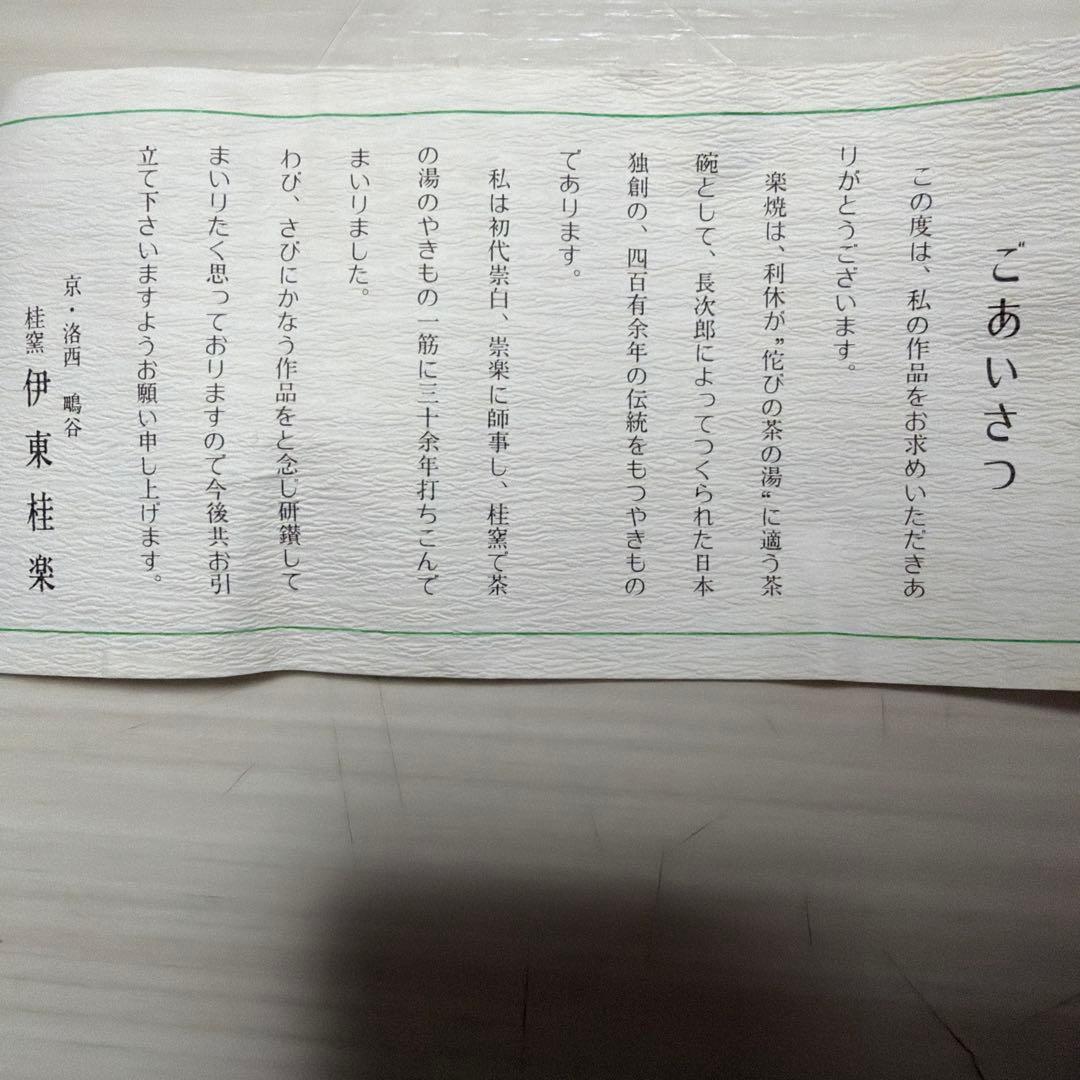 ごあいさつ
この度は、私の作品をお求めいただきあ
りがとうございます。
楽焼は、利休が〝侘びの茶の湯〟に適う茶
碗として、長次郎によってつくられた日本
独創の、四百有余年の伝統をもつやきもの
であります。
私は初代崇白、崇楽に師事し、桂窯で茶
の湯のやきもの一筋に三十余年打ちこんで
まいりました。
わび、さびにかなう作品をと念じ研鑽して
まいりたく思っておりますので今後共お引
立て下さいますようお願い申し上げます。
京・洛西 鴫谷
桂窯 伊東桂楽